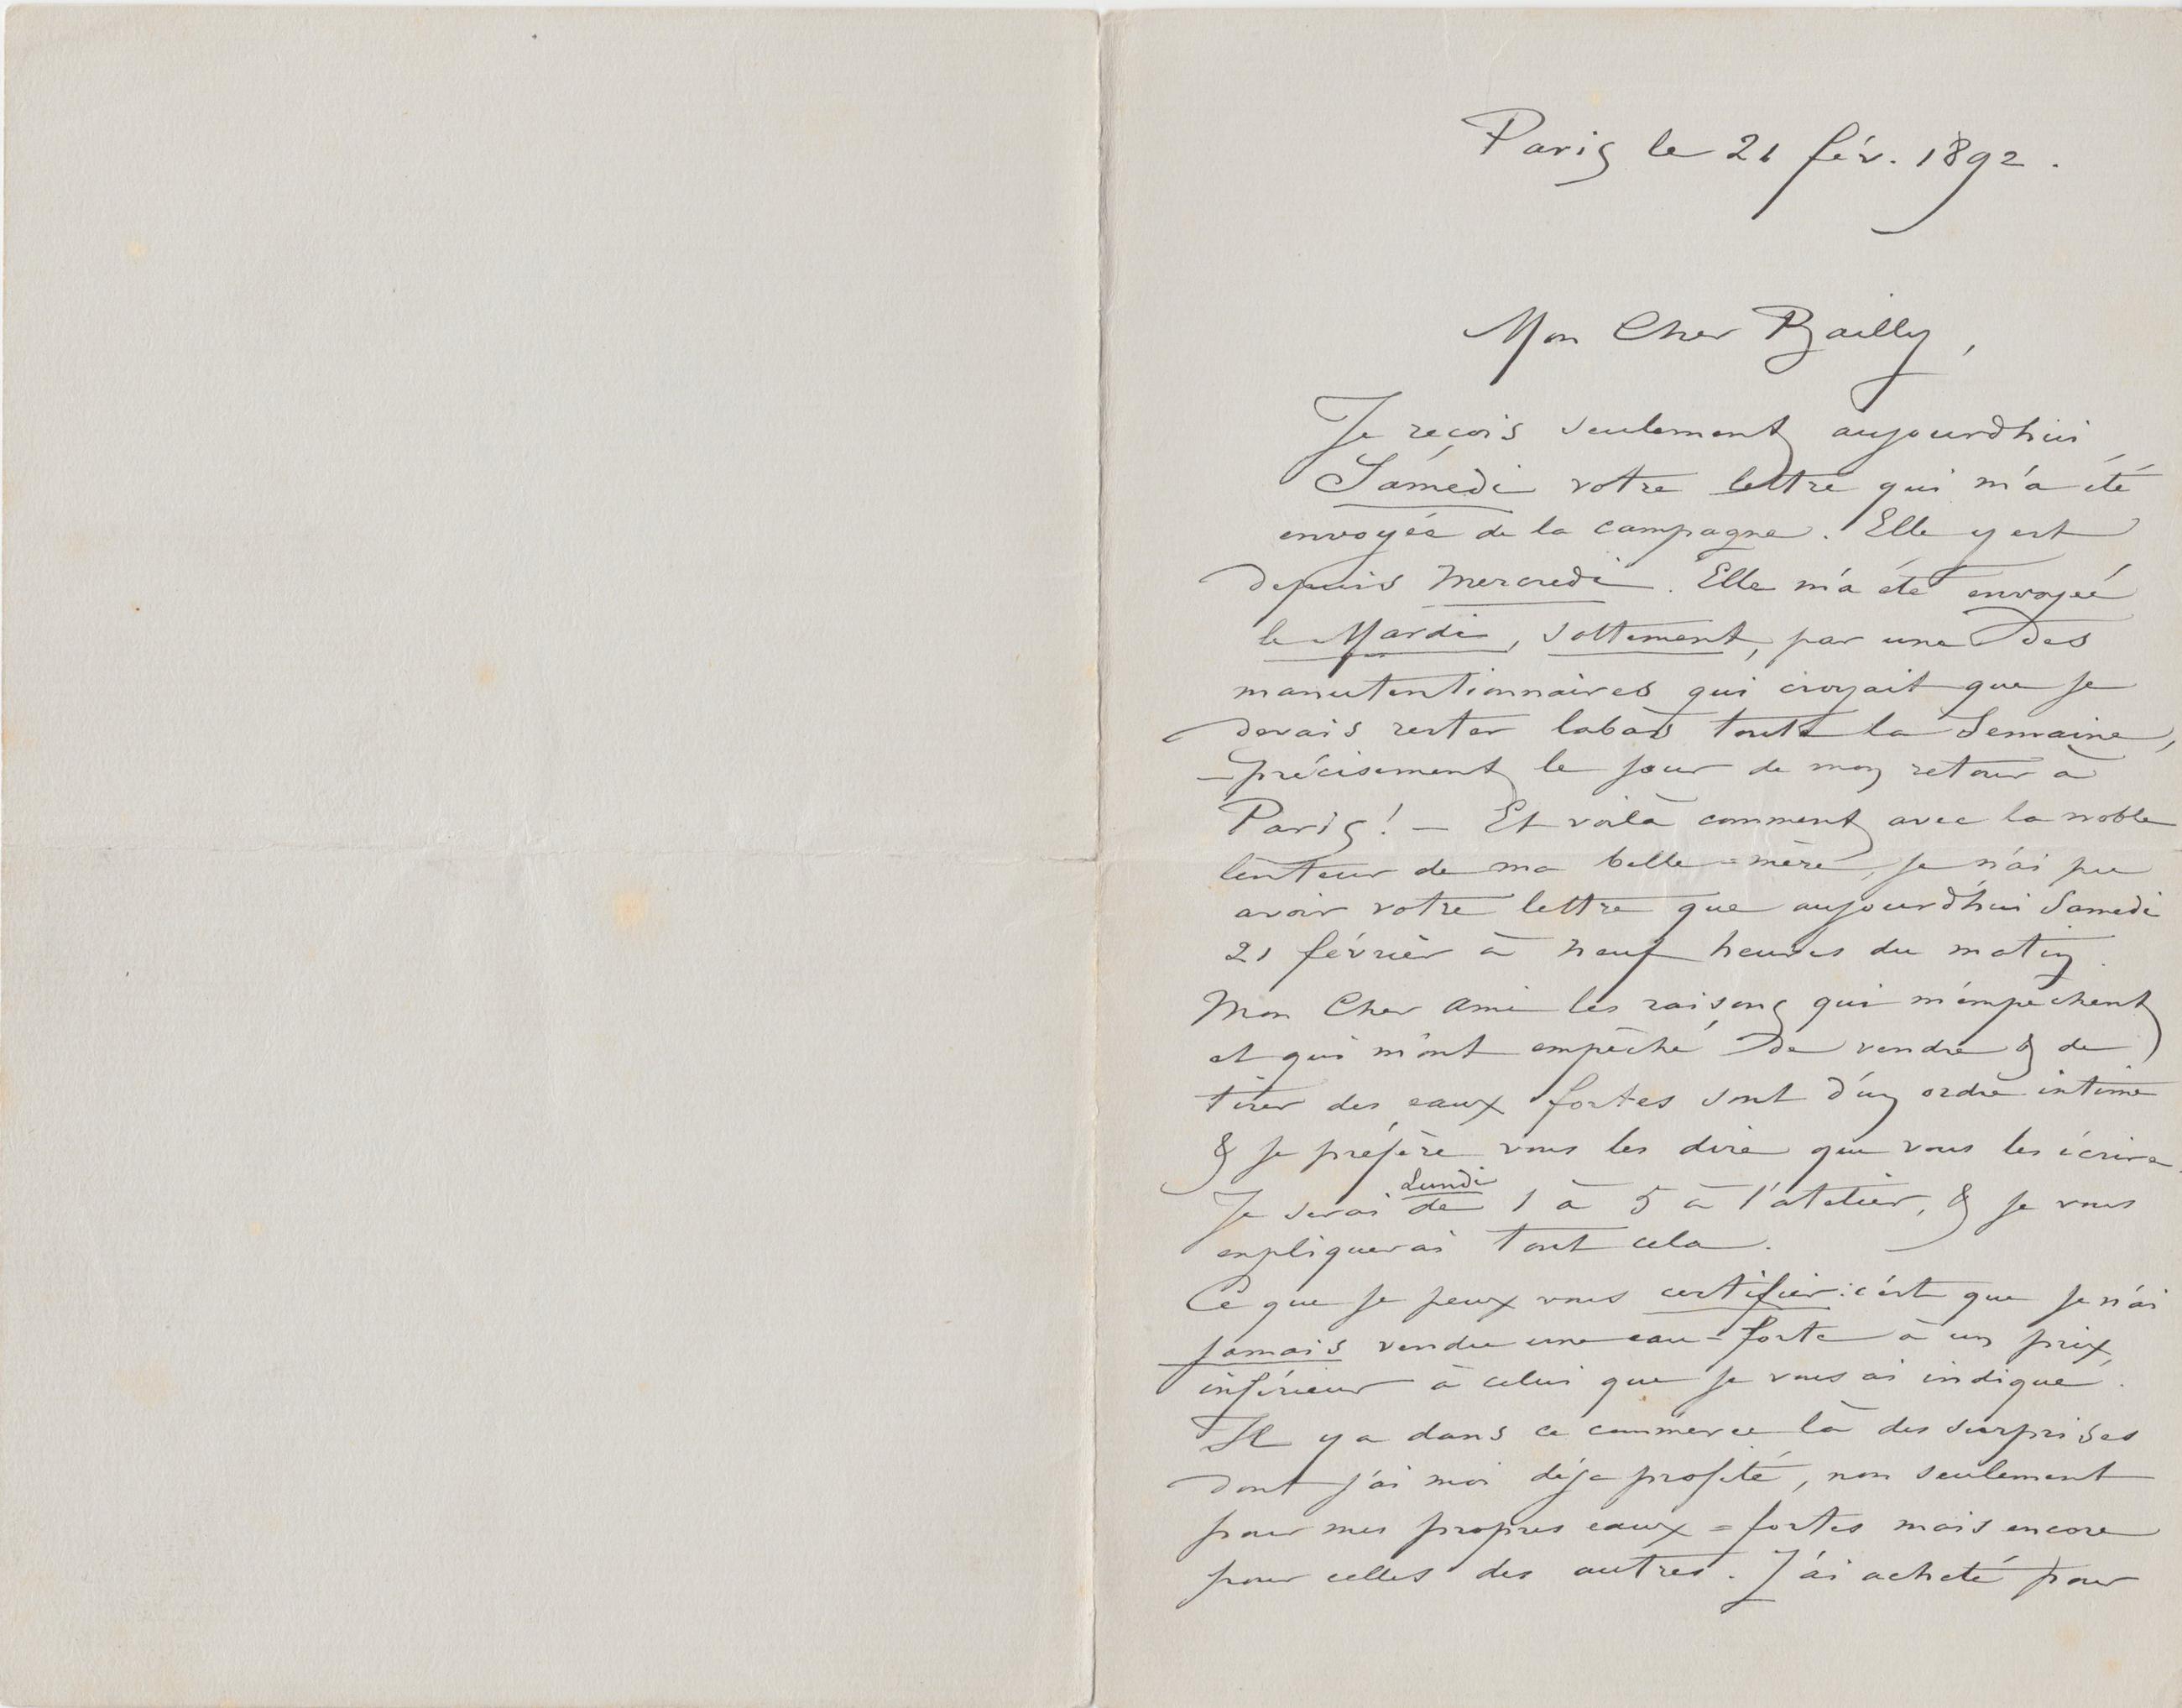 Paris le 21 fév. 1892.
Mon Cher Bailly,
Je reçois seulement aujourdhui
Samedi votre lettre qui m'a été
envoyée de la campagne. Elle y est
depuis Mercredi. Elle m'a été envoyée
le Mardi, sottement, par une des
manutentionnaires qui croyait que je
devais rester labas toute la Semaine,
précisement le jour de mon retour à
Paris! — Et voilà comment avec la noble
lenteur de ma belle=mère, je n'ai pu
avoir votre lettre que aujourd'hui Samedi
21 février à neuf heures du matin.
Mon Cher ami les raisons qui m'empêchent
et qui m'ont empêché de vendre & de
tirer des eaux fortes sont d'un ordre intime
& je préfère vous les dire que vous les écrire.
Je serai Lundi de 1 à 5 à l'atelier, & je vous
expliquerai tout cela.
Ce que je peux vous certifier: c'est que je n'ai
jamais vendu une eau=forte à un prix
inférieur à celui que je vous ai indiqué.
Il y a dans ce commerce là des surprises
dont j'ai moi déja profité, non seulement
pour mes propres eaux=fortes mais encore
pour celles des autres. J'ai acheté pour